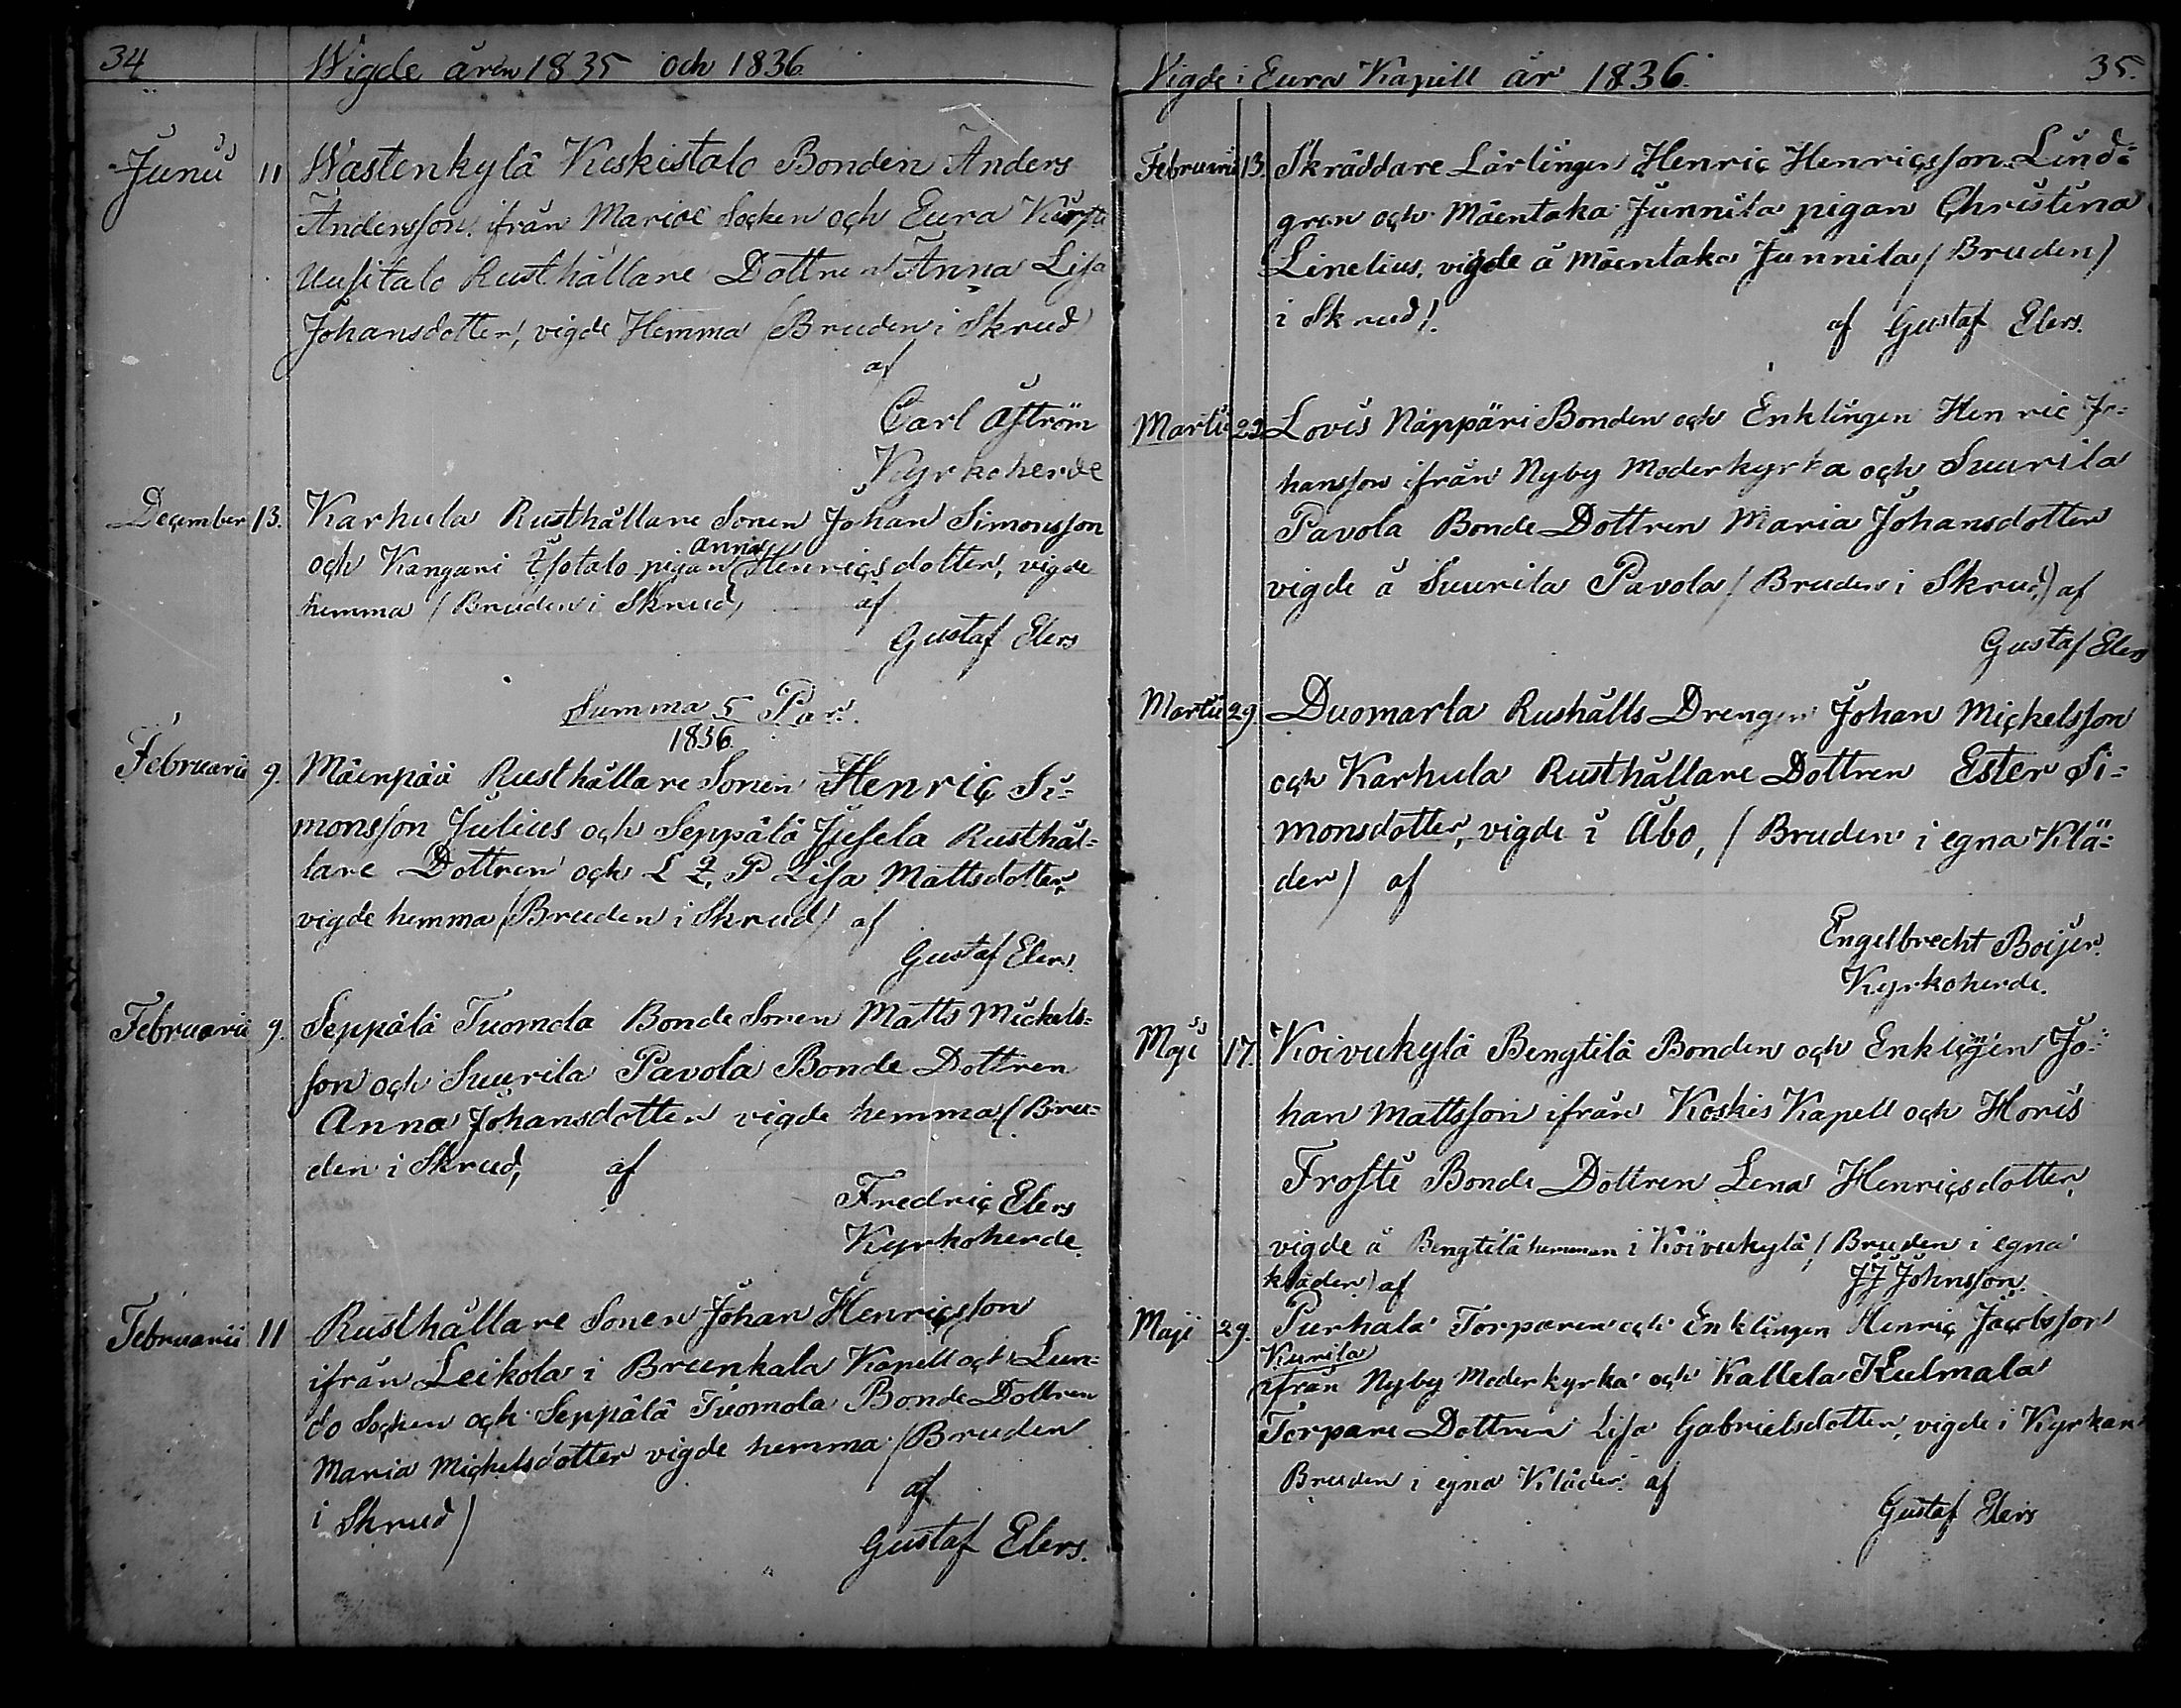 34 Wigde åren 1835 och 1836
Junii 11 Wastenkylä Keskistalo Bonden Anders
Andersson ifrån Mariæ Socken och Eura Kirpu
Uusitalo Rusthållare Dottren Anna Lisa
Johansdotter, vigde Hemma (Bruden i Skrud)
af
Carl Åström
Kyrkoherde
December 13. Karhula Rusthållare Sonen Johan Simonsson
Anna
och Kangari Isotalo pigan Henricsdotter, vigde
hemma / Bruden i Skrud) af
Gustaf Elers
Summa 5 Par.
1836.
Februarii 9. Mäenpää Rusthållare Sonen Henric Si=
monsson Julius och Seppälä Jusela Rusthål=
lare Dottren och L Q. P Lisa Mattsdotter,
vigde hemma / Bruden i Skrud / af
Gustaf Elers.
Februarii 9. Seppälä Tuomola Bonde Sonen Matts Mickels=
son och Suurila Pavola Bonde Dottren
Anna Johansdotter vigde hemma (Bru=
den i Skrud, af
Fredric Elers
Kyrkoherde.
Februarii 11 Rusthållare Sonen Johan Henricsson
ifrån Leikola i Brunkala Kapell och Lun=
do Socken och Seppälä Tuomola Bonde Dottren
Maria Michelsdotter vigde hemma / Bruden
i Skrud) af
Gustaf Elers.
Vigde i Eura Kapell år 1836. 35.
Februarii 13. Skräddare Lärlingen Henric Henricsson Lind=
gren och Mäentaka Junnila pigan Christina
Linelius, vigde å Mäentaka Junnila / Bruden /
i Skrud /. af Gustaf Elers.
Martii 22 Lovis Näppäri Bonden och Enklingen Henric Jo=
hansson ifrån Nyby Moderkyrka och Suurila
Pavola Bonde Dottren Maria Johansdotter
vigde å Suurila Pavola / Bruden i Skrud,) af
Gustaf Elers
Martii 29. Duomarla Rushålls Drengen Johan Mickelsson
och Karhula Rusthållare Dottren Ester Si=
monsdotter, vigde i Åbo, / Bruden i egna Klä=
der) af
Engelbrecht Boijer.
Kyrkoherde.
Maji 17. Koivukylä Bengtilä Bonden och Enklingen Jo=
han Mattsson ifrån Koskis Kapell och Horis
Frosti Bonde Dottren Lena Henricsdotter,
vigde å Bengtilä hemman i Koivukylä / Bruden i egna
kläder) af JJ Johnsson.
Maji 29. Purhala Torparen och Enklingen Henric Jacobsson
Kurila
ifrån Nyby Moderkyrka och Kallela Kulmala
Torpare Dottren Lisa Gabrielsdotter, vigde i Kyrkan
Bruden i egna Kläder. af
Gustaf Elers